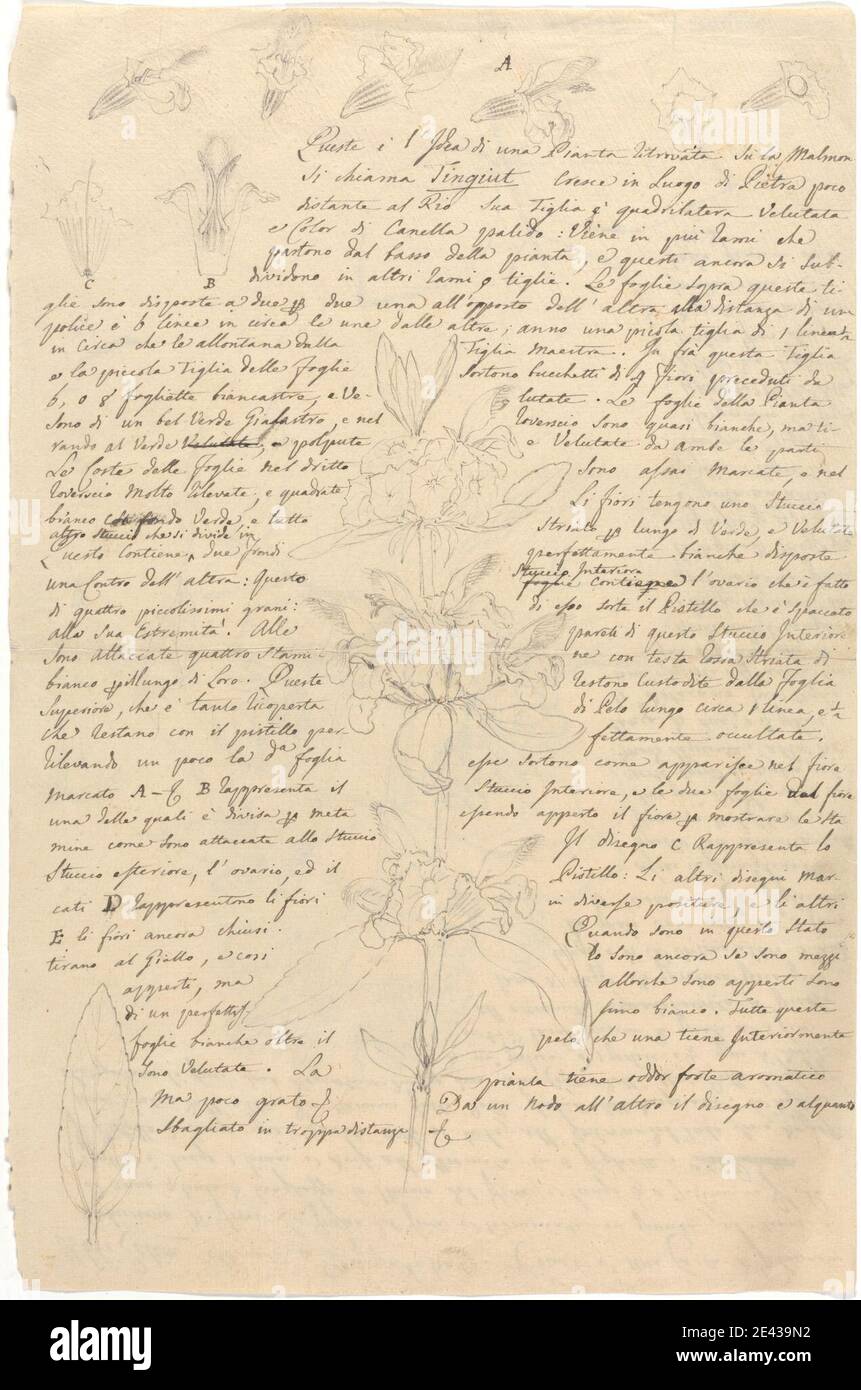 A
Queste è l'Idea di una Pianta ritrovata Su la Malmon
Si chiama Tingiut Cresce in Luogo di Pietra poco
distante al Rio Sua Tiglia è quadrilatera Velutata
e Color di Canella palido: Viene in più rami che
partono dal basso della pianta, e questi ancora si Sub-
C B dividono in altri rami o tiglie. Le foglie sopra queste ti-
glie sono disposte a due per due una all'opposto dell'altra alla distanza di un
police è 6 linee in circa le une dalle altre; anno una picola tiglia di 1 linea
in circa che le allontana dalla Tiglia Maestra. In frà questa Tiglia
e la piccola Tiglia delle foglie Sortono bucchetti di fiori preceduti da
6, o 8 fogliette biancastre, e Ve- lutate. Le foglie della Pianta
Sono di un bel Verde Giafastro, e nel roverscio Sono quasi bianche, ma ti-
rando al Verde Velutate, e polpute e Velutate da Ambe le parti
Le Coste delle foglie nel dritto Sono assai Marcate, e nel
roverscio Molto rilevate, e quadrate Li fiori tengono uno Stuccio
bianco fondo Verde e tutto Striato per lungo di Verde, e Velutato
altro Stuccio che si divide in
Questo Contiene due frondi perfettamente bianche disposte
una Contro dell'altra: Questo Stuccio Interiore foglie contiene l'ovario che è fatto
di quattro piccolissimi grani: di esso sorte il Pistillo che è Spaccato
alla Sua Estremità. Alle pareti di questo Stuccio Interiore
Sono attaccate quattro Stami- ne con testa rossa Striata di
bianco per il lungo di Loro. Queste restono Custodite dalla foglia
Superiore, che è tanto ricoperta di Pelo lungo circa 1 linea, e
che restano con il pistillo per fettamente occultate.
rilevando un poco la da foglia esse Sortono come apparisce nel fiore
Marcato A - B rappresenta il Stuccio Interiore, e le due foglie dal fiore
una delle quali è divisa per metà essendo apperto il fiore per mostrare le Sta
mine come Sono attaccate allo Stuccio Il disegno C Rappresenta lo
Stuccio esteriore, l'ovario, ed il Pistillo: Li altri disegni Mar-
cati D rappresentono li fiori in diverse positure, e li altri
E li fiori ancora chiusi. Quando sono in questo Stato
tirano al Giallo, e così lo sono ancora se sono mezzi
apperti, ma allorche Sono apperti Sono
di un perfettis simo bianco. Tutte queste
foglie bianche oltre il pelo che una tiene Interiormente
Sono Velutate. La pianta tiene oddor forte aromatico
Ma poco grato Da un Nodo all'altro il disegno e alquanto
Sbagliato in troppa distanza
alamy
Image ID: 2E439N2
www.alamy.com